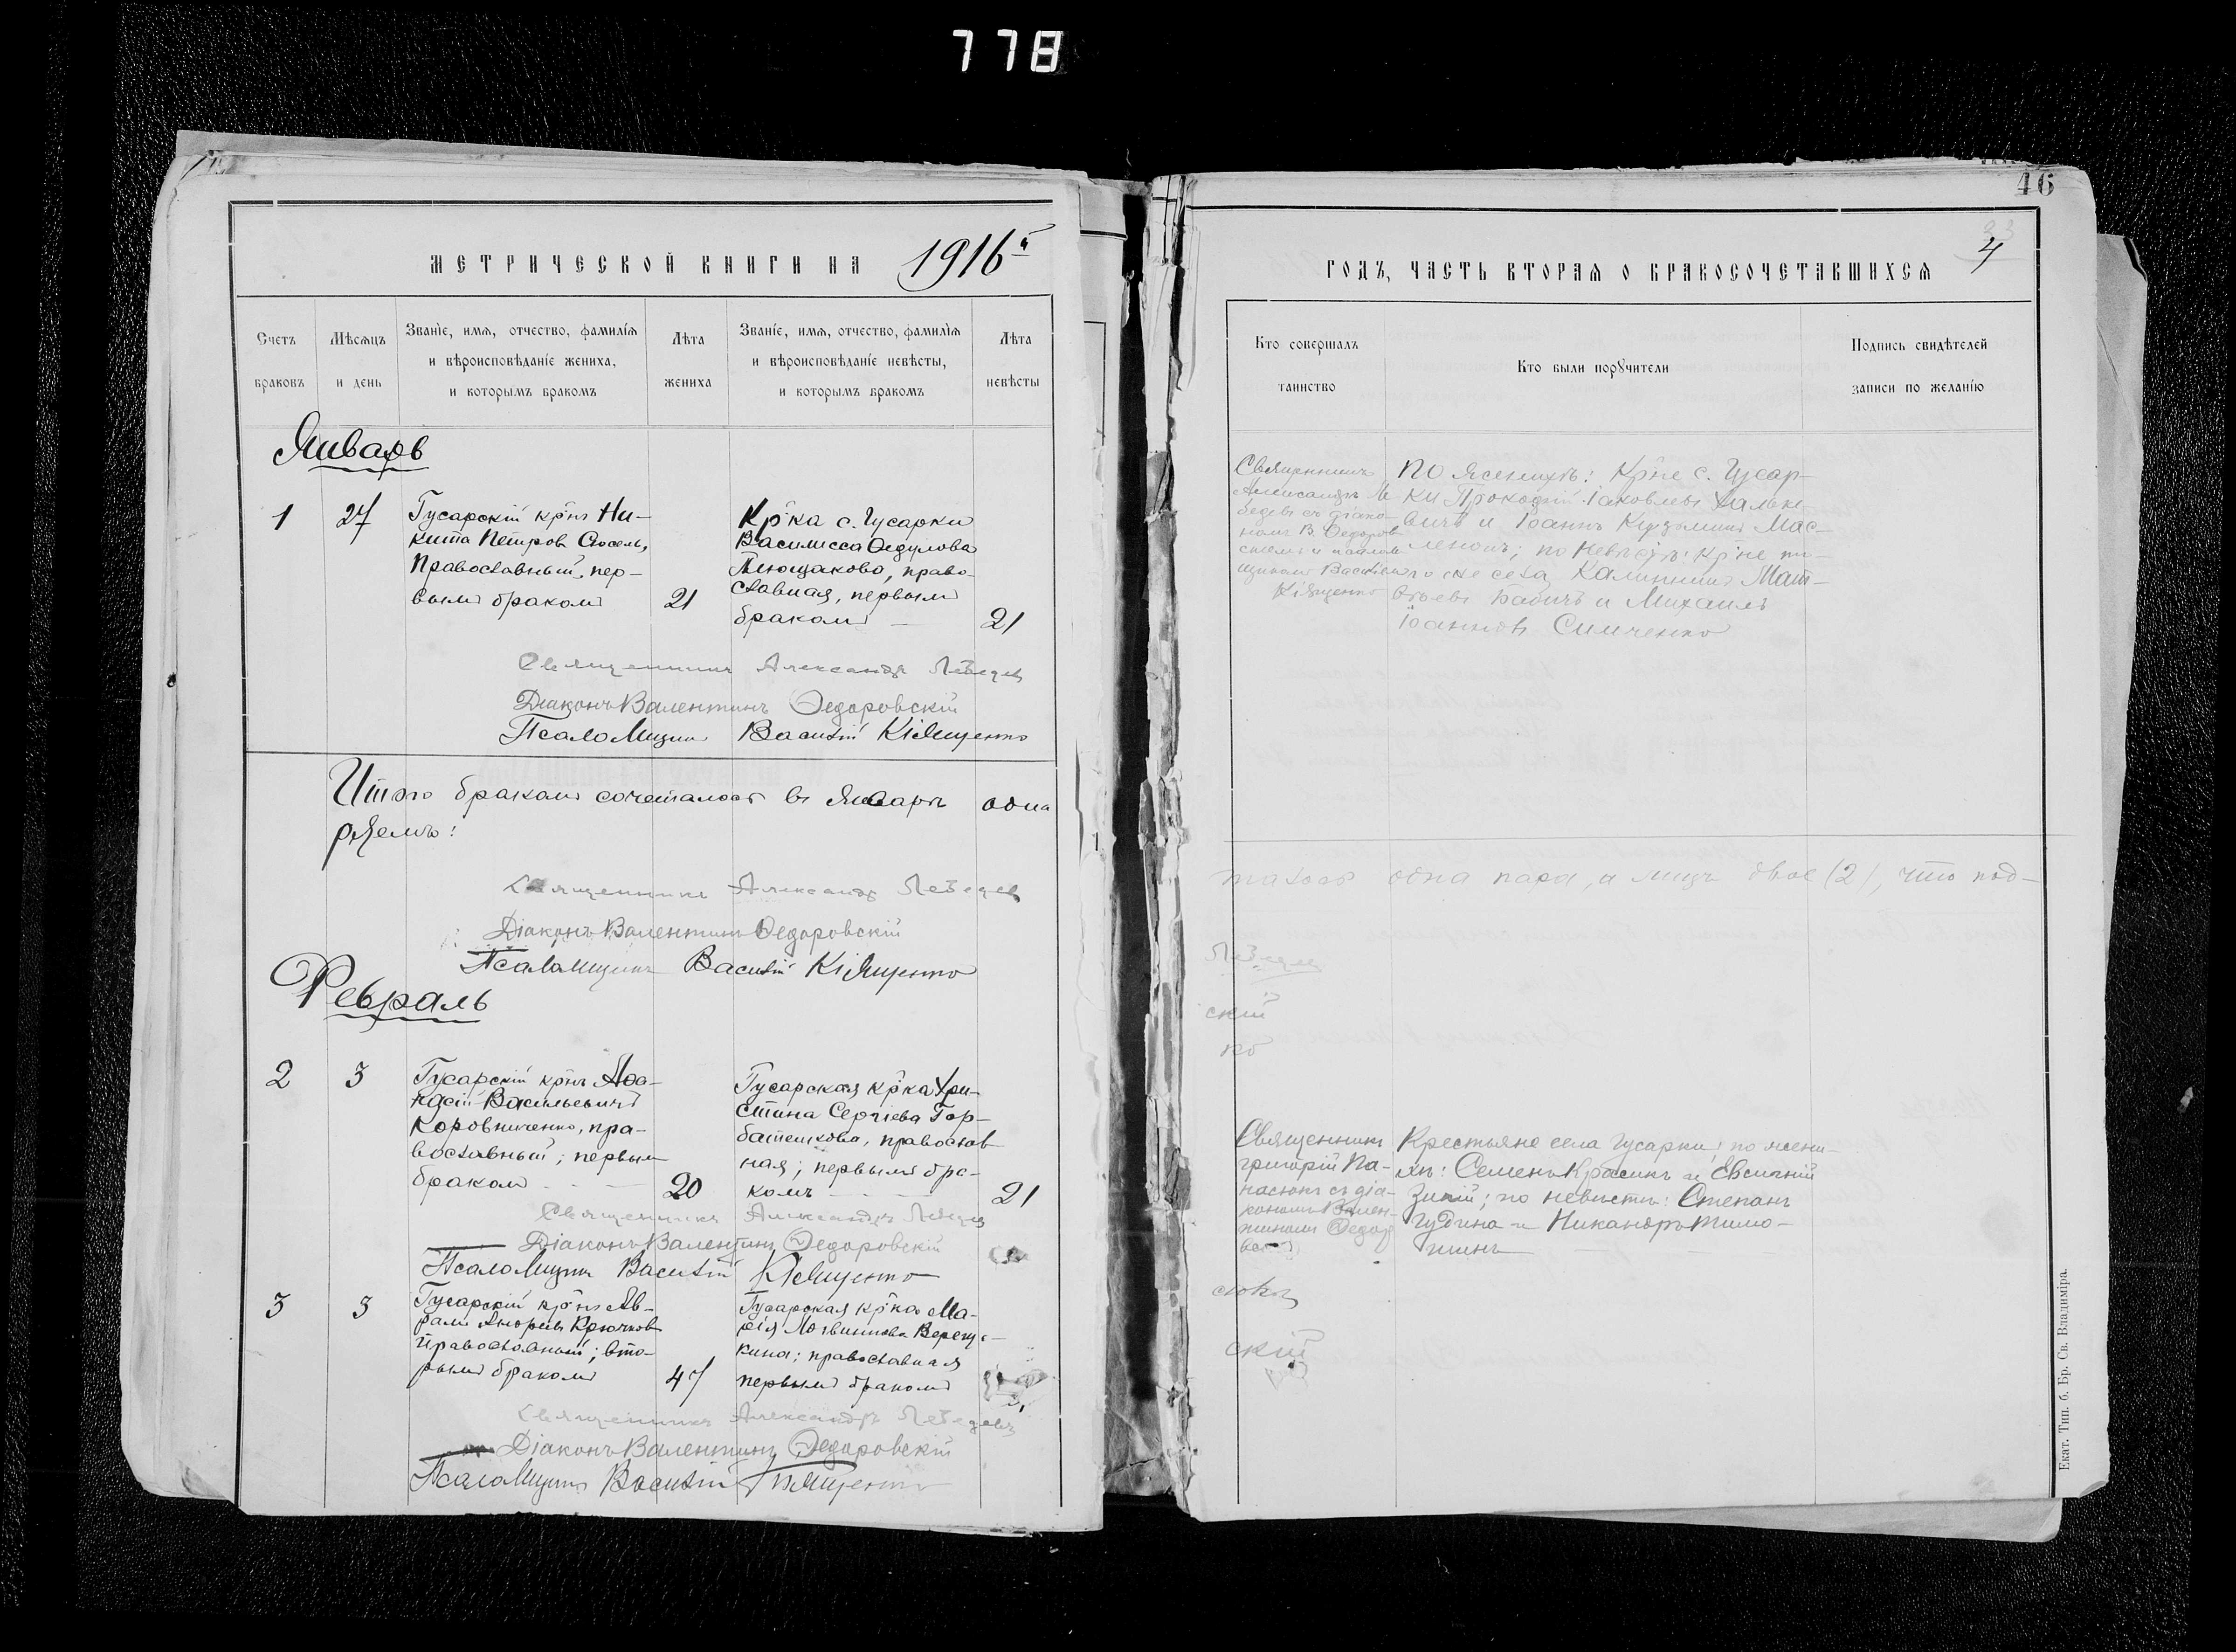 778
46
МЕТРИЧЕСКОЙ КНИГИ НА 1916й
Счетъ браковъ
Мѣсяцъ и день
Званіе, имя, отчество, фамилія
и вѣроисповѣданіе жениха,
и которымъ бракомъ
Лѣта жениха
Званіе, имя, отчество, фамилія
и вѣроисповѣданіе невѣсты,
и которымъ бракомъ
Лѣта невѣсты
Январь
1
27
Гусарскій кр-нъ Ни-
кита Петровъ
Православный, пер-
вымъ бракомъ
21
Кр-ка с. Гусарки
Василисса Ѳедулова
право-
славная, первымъ
бракомъ
21
Священникъ Александръ Лебедев
Діаконъ Валентинъ Ѳедоровскій
Псаломщикъ Василій Кіященко
Итого бракомъ сочеталось въ Январѣ одна
Священникъ Александръ Лебедев
Діаконъ Валентинъ Ѳедоровскій
Псаломщикъ Василій Кіященко
Февраль
2
3
Гусарскій кр-нъ Аѳа-
насій Васильевичъ
Коровниченко, пра-
вославный; первым
бракомъ
20
Гусарская кр-ка Хри-
стина Сергіева Гор-
батенкова, православ
ная; первымъ бра-
комъ
21
Священникъ Александръ Лебедев
Діаконъ Валентинъ Ѳедоровскій
Псаломщикъ Василій Кіященко
3
3
Гусарскій кр-нъ Ав-
рамъ Андреевъ Крючковъ
православный; вто-
рымъ бракомъ
47
Гусарская кр-ка Ма-
рія Логвинова
православная
первымъ бракомъ
Священникъ Александръ Лебедевъ
Діаконъ Валентинъ Ѳедоровскій
Псаломщикъ Василій Кіященко
4
ГОДЪ, ЧАСТЬ ВТОРАЯ О БРАКОСОЧЕТАВШИХСЯ
Кто совершалъ
таинство
Кто были порꙋчители
Подпись свидѣтелей
записи по желанію
Священникъ
Александръ Ле
бедевъ съ діако-
номъ В. Ѳедоров
скимъ и псалом
щикомъ Василіем
Кіященко
По женихѣ: Кр-не с. Гусар-
ки Прокофій Іаковлевъ
и Іоаннъ Кузьминъ Мас-
по невѣстѣ: кр-не
го же села, Калинникъ Мат-
вѣевъ Бабичъ и Михаилъ
Іоанновъ Симченко
талось одна пара, а лицъ двое (2), что под-
Лебедев
скій
ко
Священникъ
Григорій Па-
насюкъ съ діа-
кономъ Вален-
тиномъ Ѳедор
Крестьяне села Гусарки: по жени-
хѣ: Семенъ Красикъ и Евсигній
по невѣстѣ: Степанъ
Гудина и Никандръ Тимо-
скій
Екат. Тип. б. Бр. Св. Владиміра.